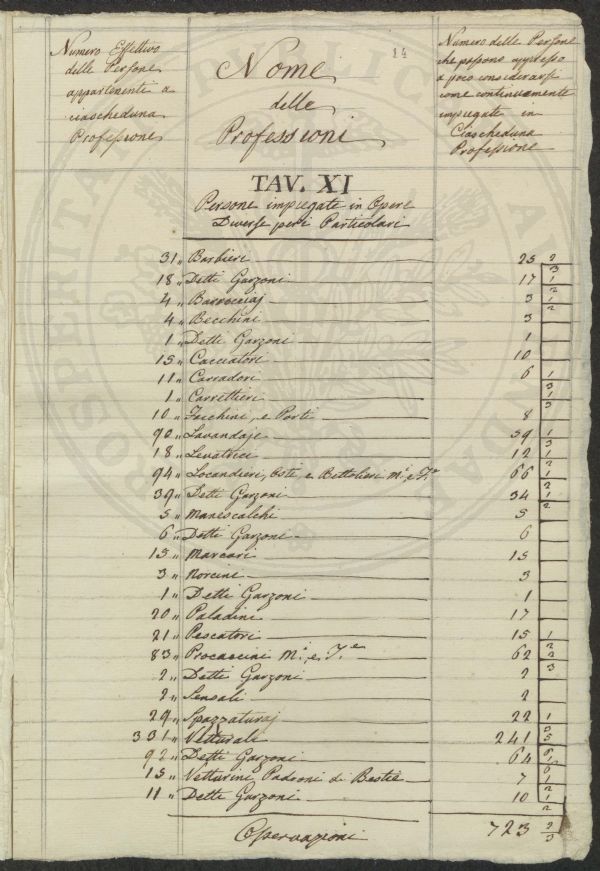 84
Numero Effettivo
delle Persone
appartenenti a
ciascheduna
Professione
Nome
delle
Professioni
Numero delle Persone
che possono appresso
a poco considerarsi
come continuamente
impiegate in
Ciascheduna
Professione
TAV. XI
Persone impiegate in Opere
Diverse per i Particolari
31 „ Barbieri 25 2/3
18 „ Detti Garzoni 17 1/2
4 „ Barrocciaj 3 1/2
4 „ Becchini 3
1 „ Detti Garzoni 1
15 „ Cacciatori 10
11 „ Carradori 6 1/3
1 „ Carrettieri 1/3
10 „ Facchini, e Porti 8
90 „ Lavandaje 59 1/3
18 „ Levatrici 12 1/2
94 „ Locandieri, Osti, e Bettolieri M.i e F.e 66 1/2
39 „ Detti Garzoni 34 1/2
5 „ Manescalchi 5
6 „ Detti Garzoni 6
15 „ Marcari 15
3 „ Norcini 3
1 „ Detti Garzoni 1
20 „ Paladini 17
21 „ Pescatori 15 1/2
83 „ Procaccini M.i e F.e 62 2/3
2 „ Detti Garzoni 2
2 „ Sensali 2
29 „ Spazzaturaj 22 1/3
331 „ Vetturali 241
92 „ Detti Garzoni 64
15 „ Vetturini, Padroni di Bestie 7 1/2
11 „ Detti Garzoni 10 1/2
723 2/3
Osservazioni